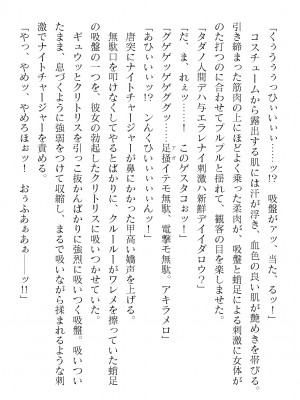 「くぅぅぅっひぃぃぃ……ッ!?　吸盤がァッ、当た、るッ！」
　コスチュームから露出する肌には汗が浮き、血色の良い肌が艶めきを帯びる。
引き締まった筋肉の上にほどよく乗った柔肉が、吸盤と蛸足による刺激に女体が
のた打つのに合わせてプルプルと揺れて、観客の目を楽しませた。
「タダノ人間デハ与エラレナイ刺激ハ新鮮デイイダロウ？」
「だ、まれぇッ……！　このゲスタコぉッ！」
「グゲゲッゲゲゲグッ……足掻イテモ無駄、電撃モ無駄。アキラメロ」
「あひぃぃぃッ!?　ンんくひぃぃぃぃんッ！」
　唐突にナイトチャージャーが鼻にかかった甲高い嬌声を上げる。
　無駄口を叩けなくしてやるとばかりに、クルールーがワレメを擦っていた蛸足
の吸盤の一つを、彼女の勃起したクリトリスに吸いつかせていた。
　ギュウッとクリトリスを引っこ抜かんばかりに強烈に吸いつく吸盤。吸いつい
たまま、息づくように強弱をつけて収縮し、まるで吸いながら揉まれるような刺
激でナイトチャージャーを責める。
「やっ、やめッ、やめろほぉッ！　おぅふあぁあぁ……ーッ!!」